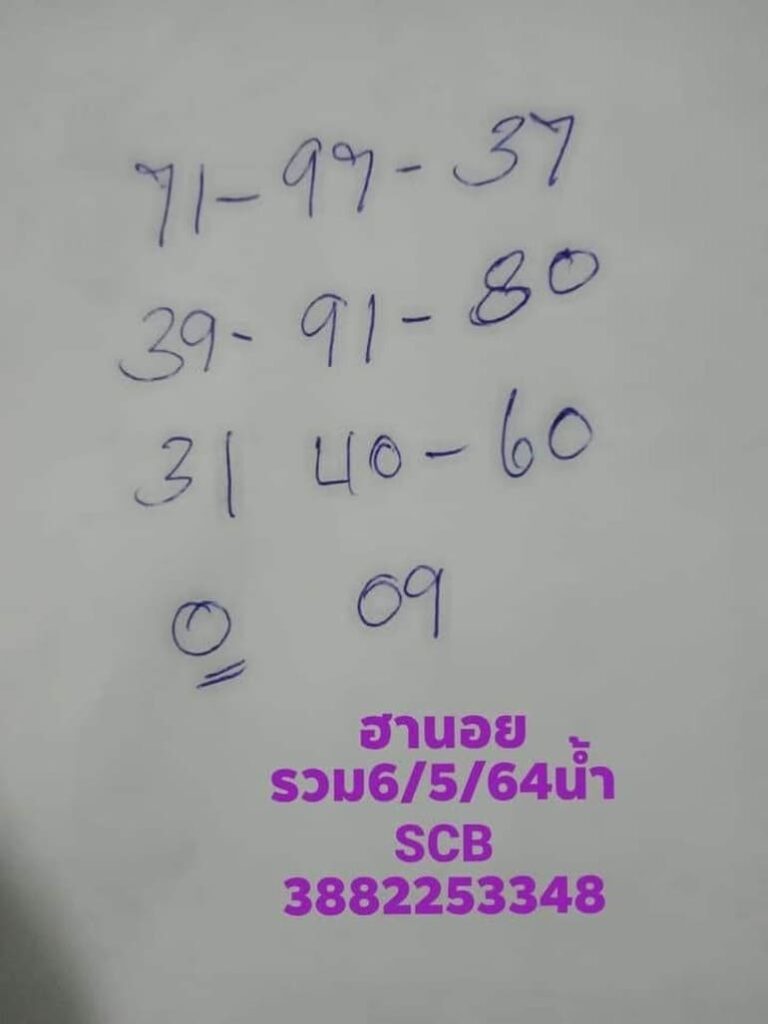 71-97-37
39-91-80
31 40-60
0 09
ฮานอย
รวม6/5/64น้ำ
SCB
3882253348